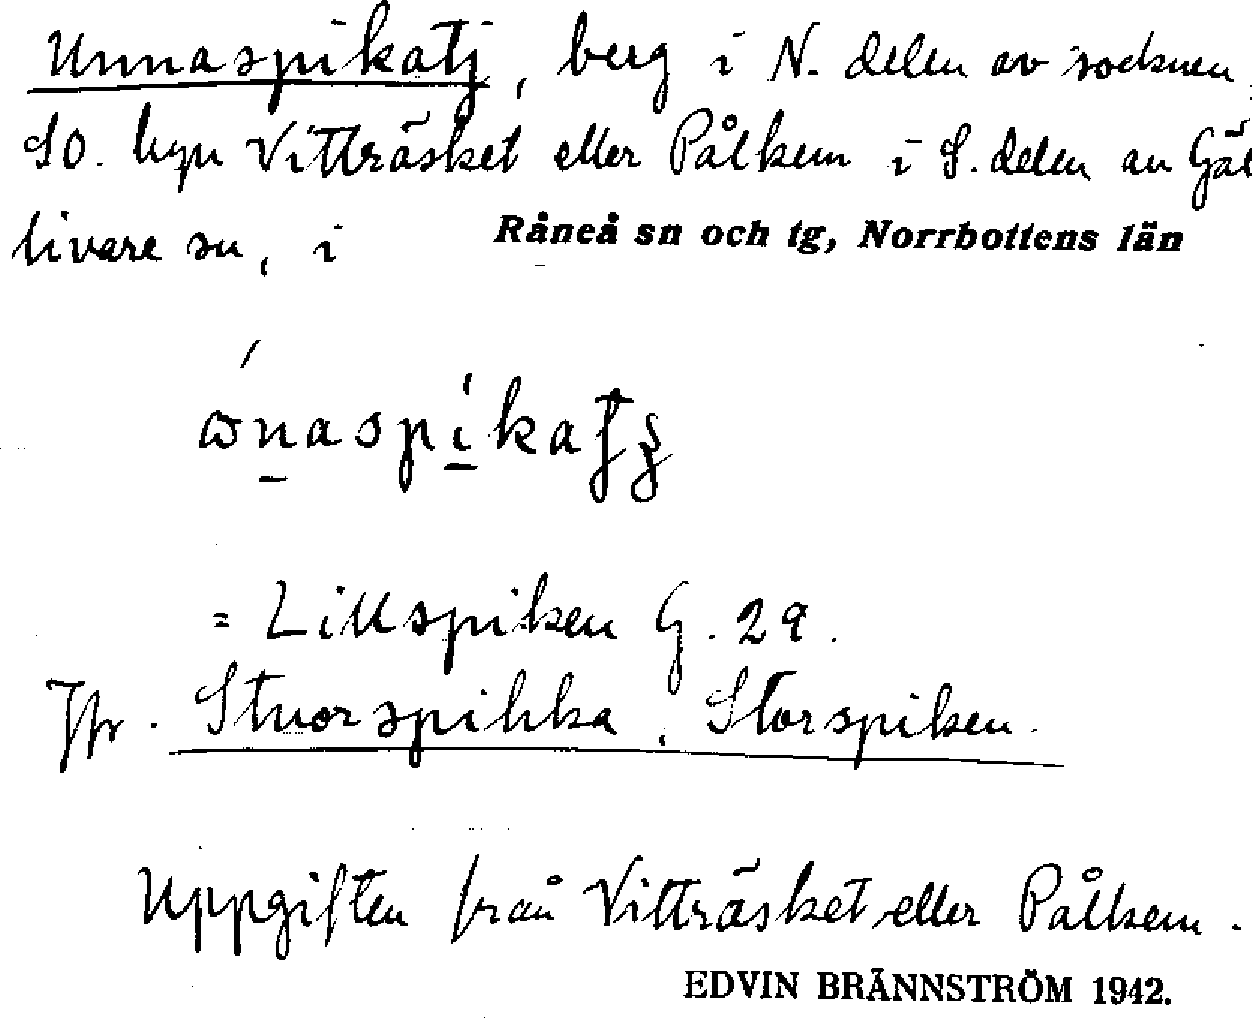 Unnaspikatj, berg i N. delen av socknen,
SO. byn Vitträsket eller Pålkem i S. delen av Gäl
livare sn, i Råneå sn och tg, Norrbottens län
= Lillspiken G. 29.
Jfr. Stuorspihka, Storspiken.
Uppgiften från Vitträsket eller Pålkem.
EDVIN BRÄNNSTRÖM 1942.